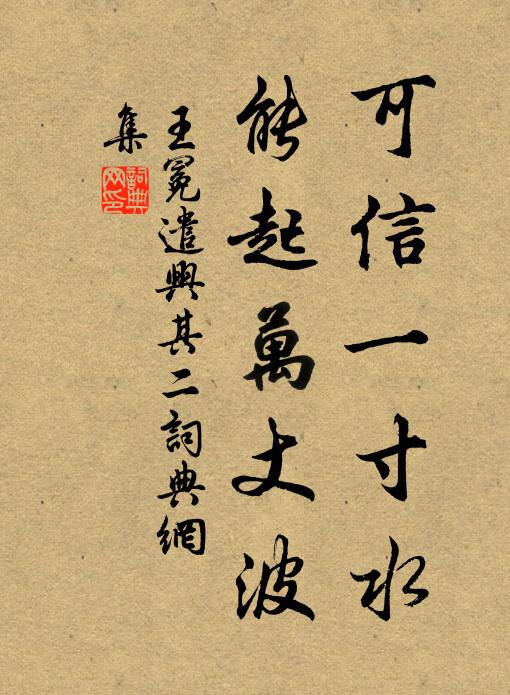 可信一寸水
能起萬丈波
王冕遣興其二詞典網
集
詞典
网印